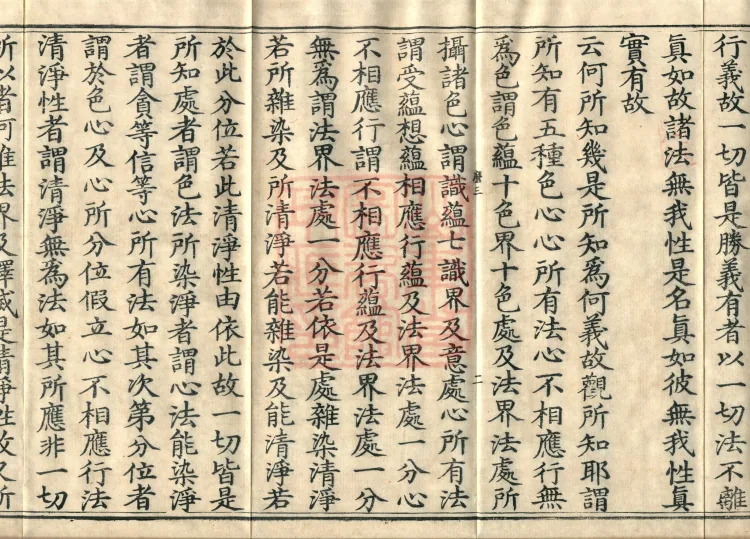 行義故一切皆是勝義有者以一切法不離
眞如故諸法無我性是名眞如彼無我性眞
實有故
云何所知幾是所知爲何義故觀所知耶謂
所知有五種色心心所有法心不相應行無
爲色謂色蘊十色界十色處及法界法處所
攝諸色心謂識蘊七識界及意處心所有法
謂受蘊想蘊相應行蘊及法界法處一分心
不相應行謂不相應行蘊及法界法處一分
無爲謂法界法處一分若依是處雜染清淨
若所雜染及所清淨若能雜染及能清淨若
於此分位若此清淨性由依此故一切皆是
所知處者謂色法所染淨者謂心法能染淨
者謂貪等信等心所有法如其次第分位者
謂於色心及心所分位假立心不相應行法
清淨性者謂清淨無爲法如其所應非一切
所以者何唯法界及擇滅是清淨性故又所
二